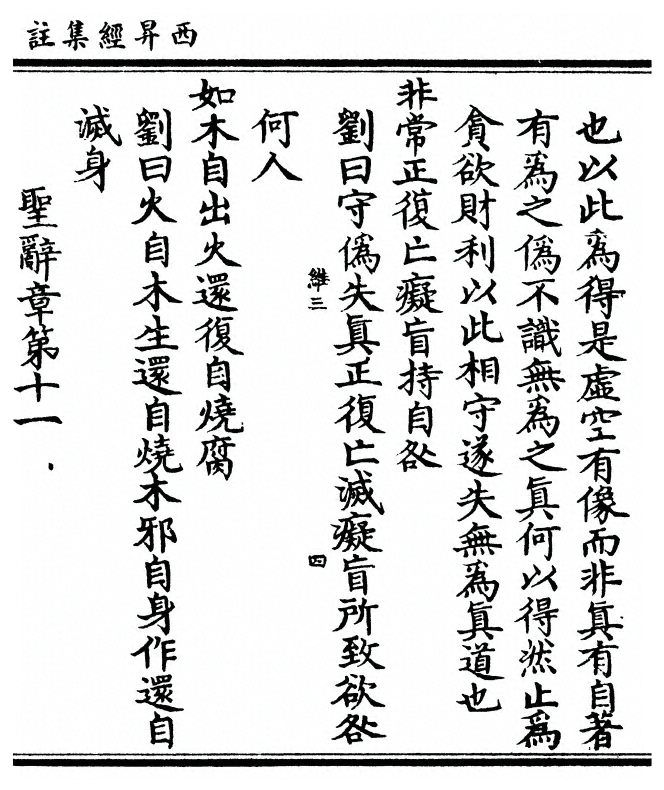 西昇經集註
也以此爲得是虛空有像而非眞有自著
有爲之僞不識無爲之眞何以得然止爲
貪欲財利以此相守遂失無爲眞道也
非常正復亡癡盲持自咎
劉曰守僞失眞正復亡滅癡盲所致欲咎
維三
四
何人
如木自出火還復自燒腐
劉曰火自木生還自燒木邪自身作還自
滅身
聖辭章第十一